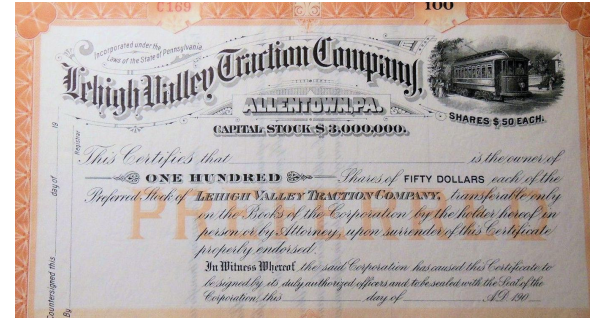 C169
100
Incorporated under the
Laws of the State of Pennsylvania.
Lehigh Valley Traction Company,
ALLENTOWN, PA.
CAPITAL STOCK $3,000,000.
SHARES $50 EACH.
This Certifies that is the owner of
ONE HUNDRED Shares of FIFTY DOLLARS each of the
Preferred Stock of LEHIGH VALLEY TRACTION COMPANY, transferable only
on the Books of the Corporation by the holder hereof in
person or by Attorney, upon surrender of this Certificate
properly endorsed.
In Witness Whereof, the said Corporation has caused this Certificate to
be signed by its duly authorized officers and to be sealed with the Seal of the
Corporation, this day of A.D. 190
PREFERRED
Countersigned this day of 19
By Registrar